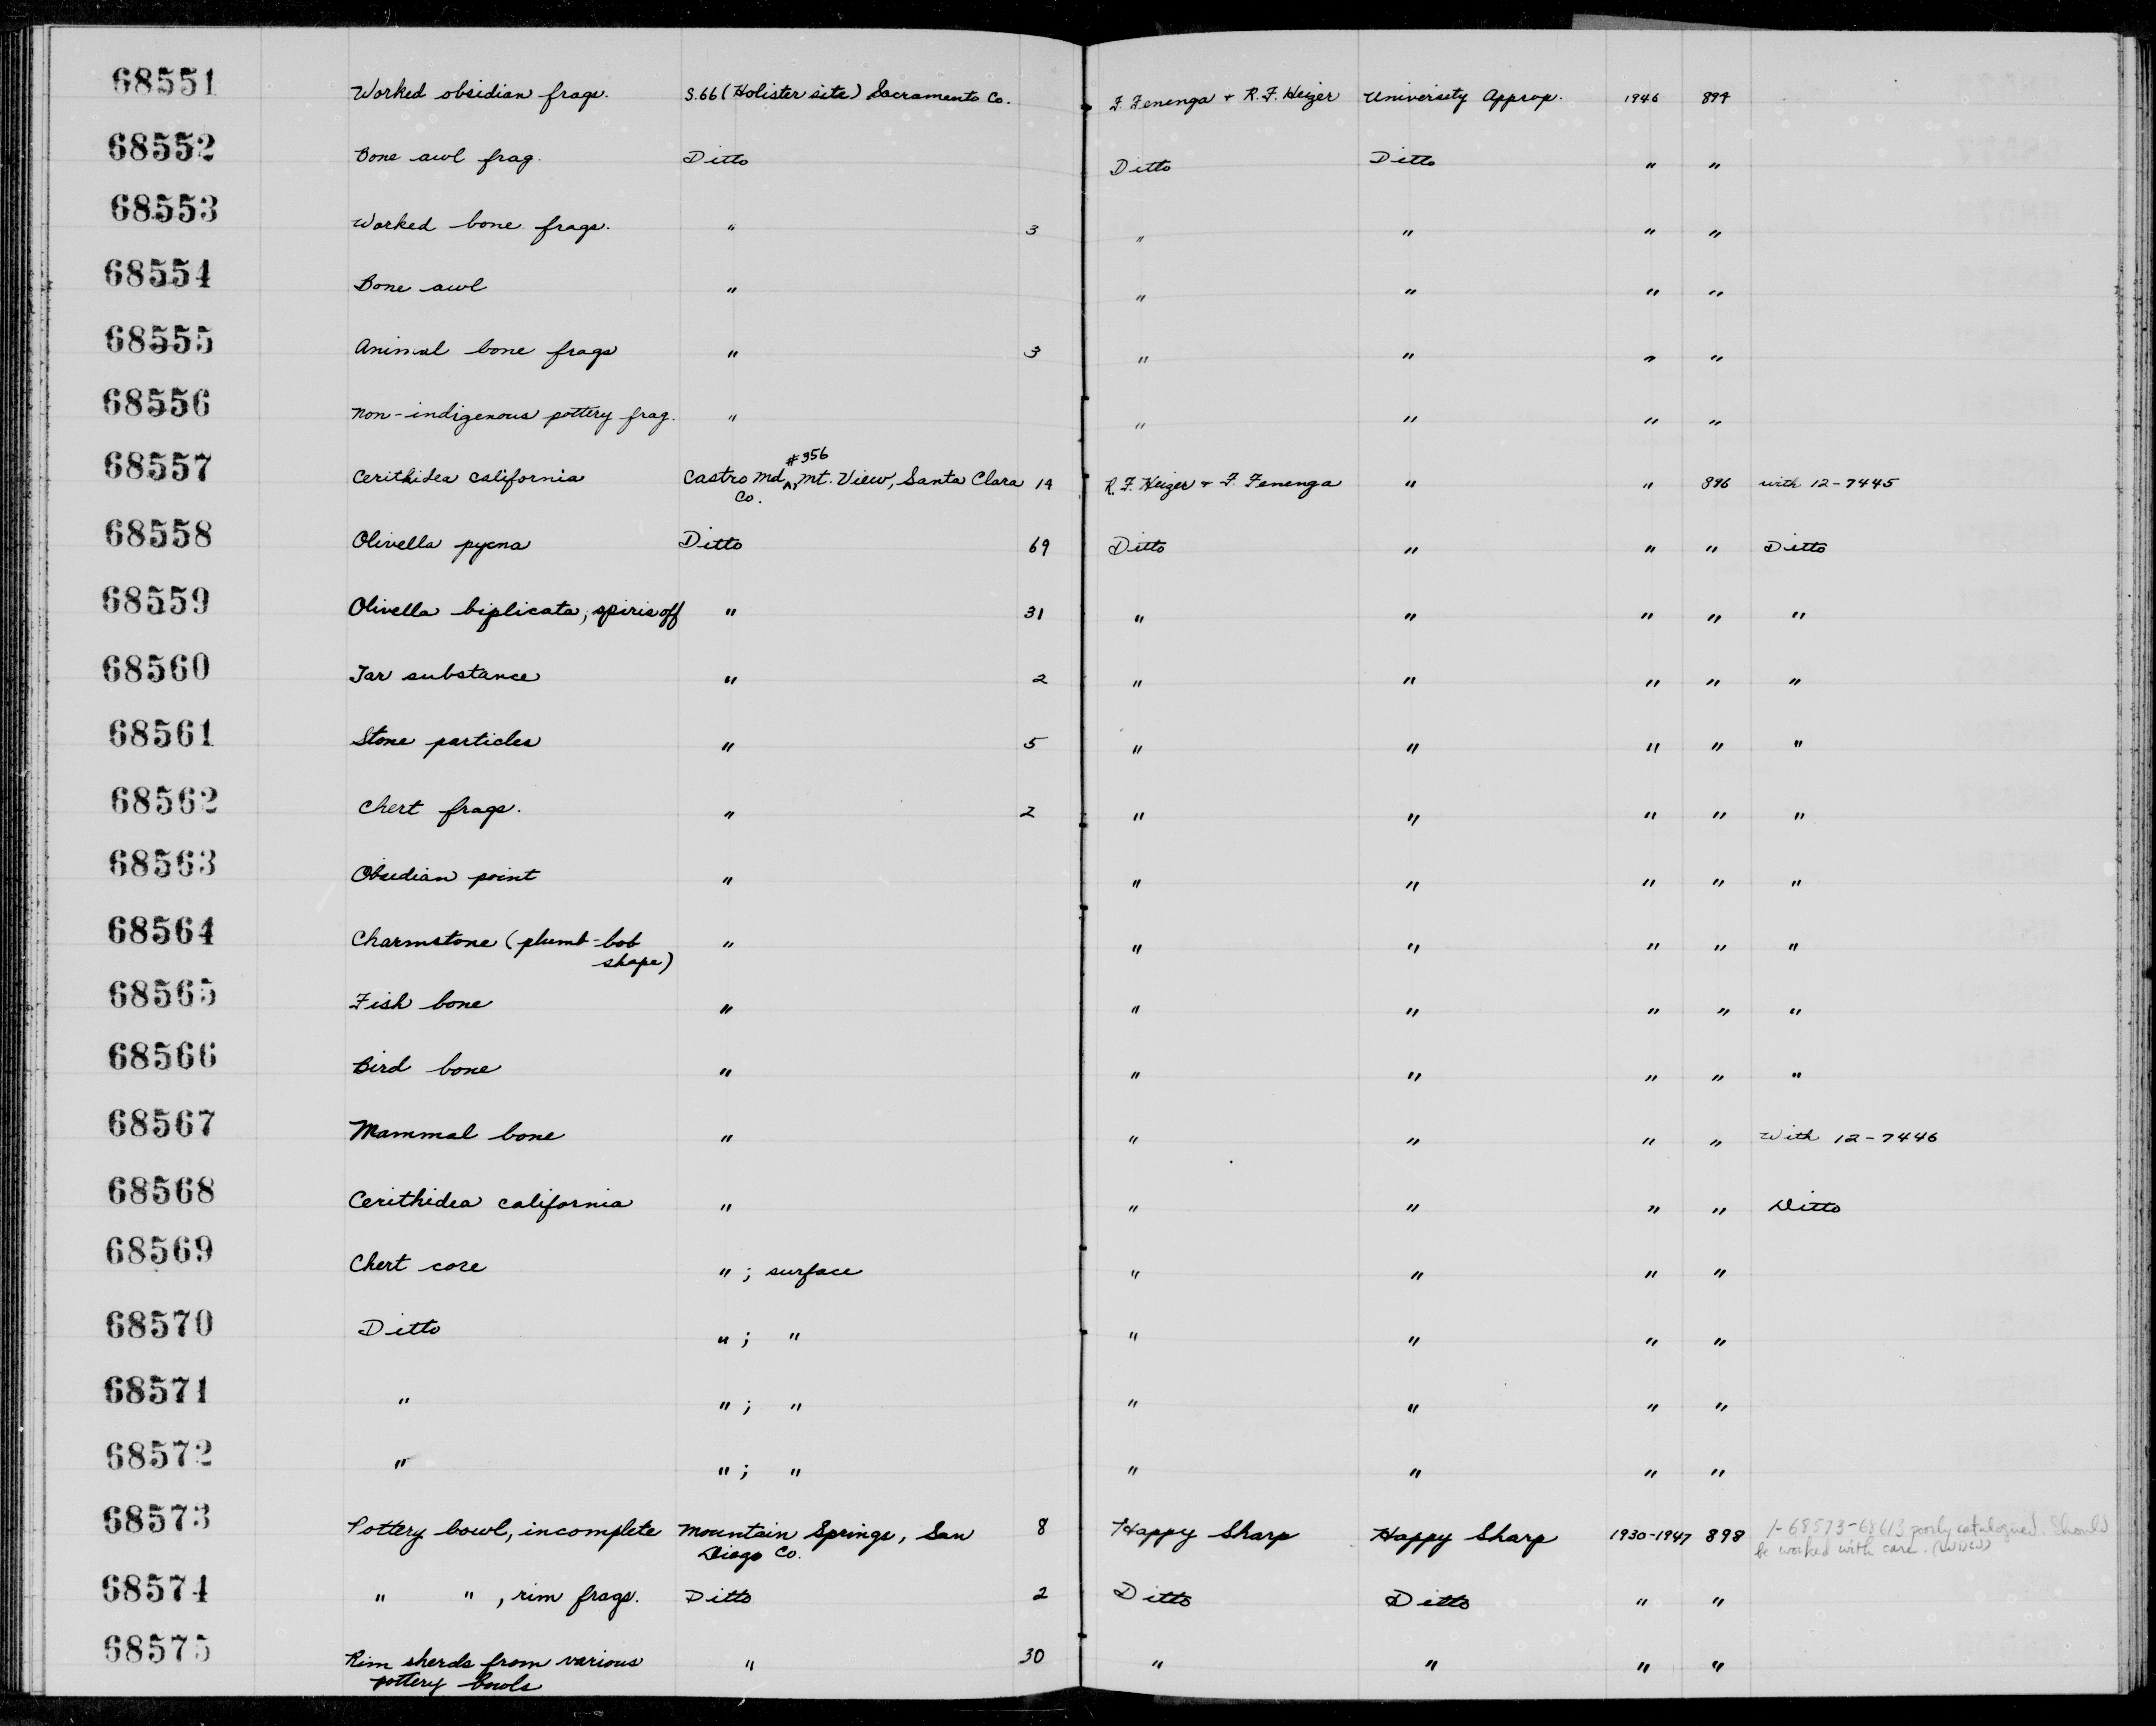 68551 Worked obsidian frags. S.66 (Holister site) Sacramento Co. F. Fenenga + R.F. Heizer University Approp. 1946 894
68552 Bone awl frag. Ditto Ditto Ditto " "
68553 Worked bone frags. " 3 " " " "
68554 Bone awl " " " " "
68555 Animal bone frags " 3 " " " "
68556 Non-indigenous pottery frag. " " " " "
#356
68557 Cerithidea california Castro Md, Mt. View, Santa Clara 14 R.F. Heizer + F. Fenenga " " 896 with 12-7445
Co.
68558 Olivella pycna Ditto 69 Ditto " " " Ditto
68559 Olivella biplicata, spires off " 31 " " " " "
68560 Tar substance " 2 " " " " "
68561 Stone particles " 5 " " " " "
68562 Chert frags. " 2 " " " " "
68563 Obsidian point " " " " " "
68564 Charmstone (plumb-bob " " " " " "
shape)
68565 Fish bone " " " " " "
68566 Bird bone " " " " " "
68567 Mammal bone " " " " " With 12-7446
68568 Cerithidea california " " " " " Ditto
68569 Chert core " ; surface " " " "
68570 Ditto " ; " " " " "
68571 " " ; " " " " "
68572 " " ; " " " " "
68573 Pottery bowl, incomplete Mountain Springs, San 8 Happy Sharp Happy Sharp 1930-1947 898 1-68573-68613 poorly catalogued. Should
Diego Co. be worked with care.
68574 " " , rim frags. Ditto 2 Ditto Ditto " "
68575 Rim sherds from various " 30 " " " "
pottery bowls